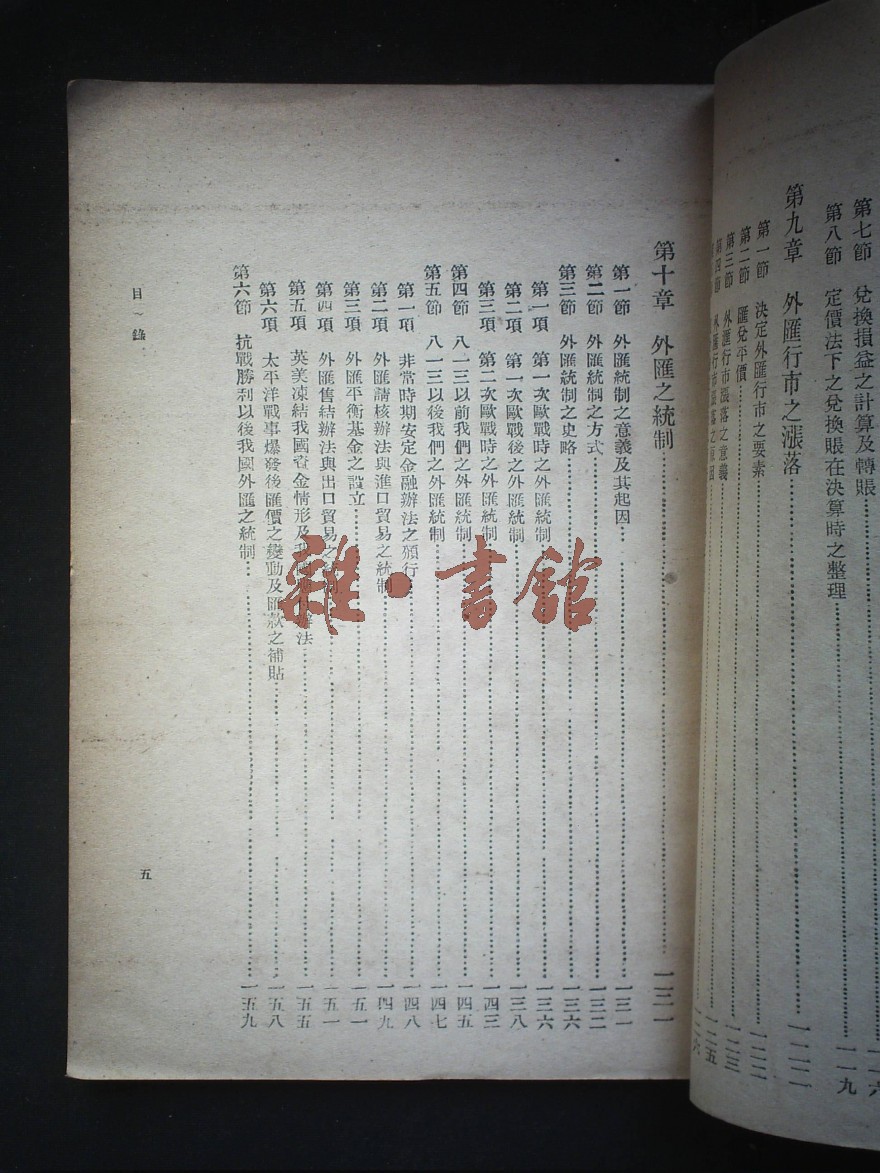 第七節 兌換損益之計算及轉賬……一一六
第八節 定價法下之兌換賬在決算時之整理……一一九
第九章 外匯行市之漲落……一二二
第一節 決定外匯行市之要素……一二二
第二節 匯兌平價……一二三
第三節 外匯行市漲落之意義……一二五
第四節 外匯行市漲落之原因……二六
第十章 外匯之統制……一三一
第一節 外匯統制之意義及其起因……一三一
第二節 外匯統制之方式……一三二
第三節 外匯統制之史略……一三六
第一項 第一次歐戰時之外匯統制……一三六
第二項 第一次歐戰後之外匯統制……一三八
第三項 第二次歐戰時之外匯統制……一四三
第四節 八一三以前我們之外匯統制……一四五
第五節 八一三以後我們之外匯統制……一四七
第一項 非常時期安定金融辦法之頒行……一四八
第二項 外匯請核辦法與進口貿易之統制……一四九
第三項 外匯平衡基金之設立……一五一
第四項 外匯售結辦法與出口貿易之……一五一
第五項 英美凍結我國資金情形及我辦法……一五五
第六項 太平洋戰事爆發後匯價之變動及匯款之補貼……一五八
第六節 抗戰勝利以後我國外匯之統制……一五九
目錄
五
雜·書館